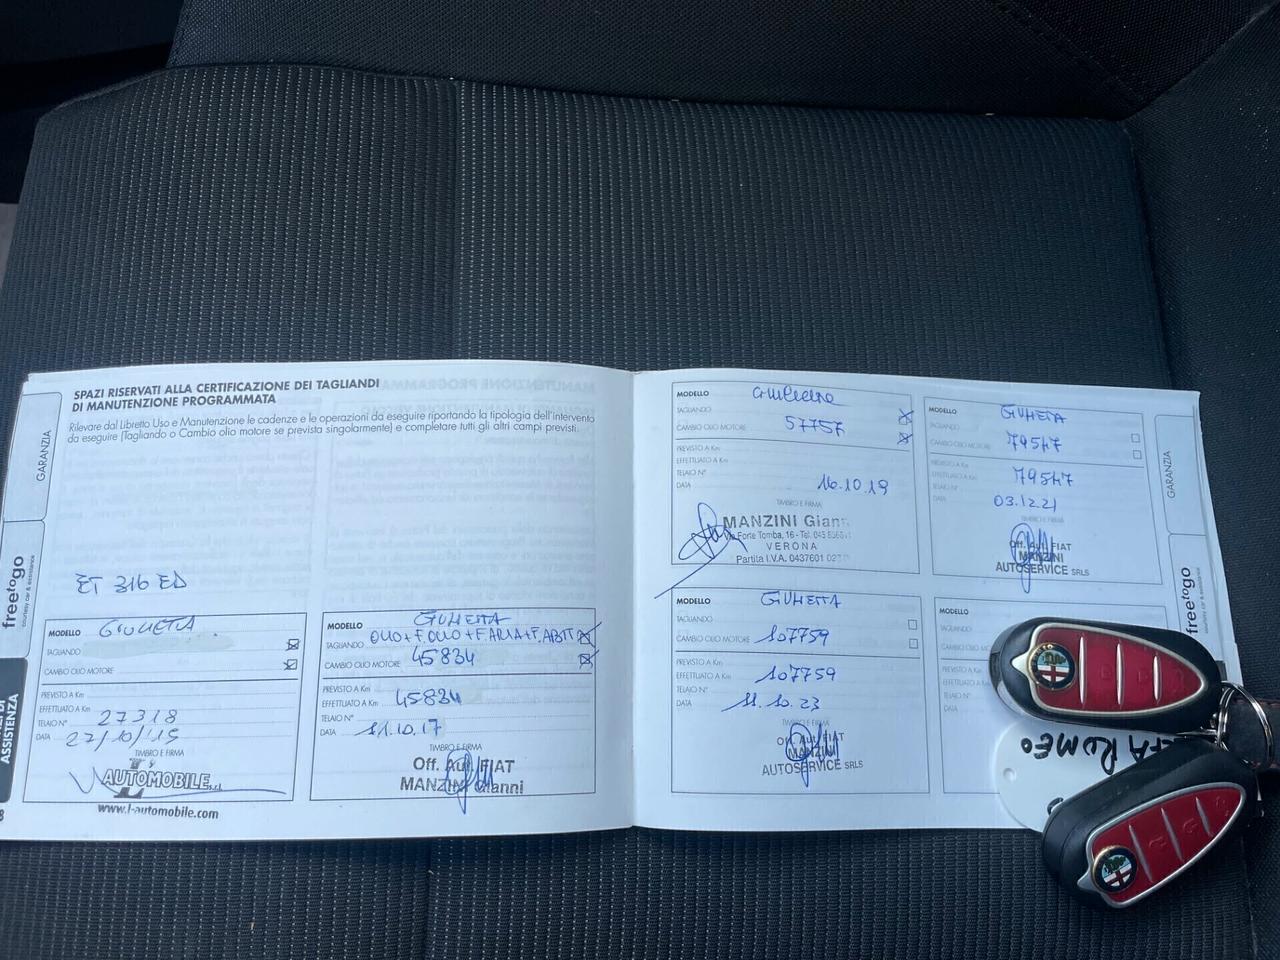 SPAZI RISERVATI ALLA CERTIFICAZIONE DEI TAGLIANDI
DI MANUTENZIONE PROGRAMMATA
Rilevare dal Libretto Uso e Manutenzione le cadenze e le operazioni da eseguire riportando la tipologia dell'intervento
da eseguire (Tagliando o Cambio olio motore se prevista singolarmente) e completare tutti gli altri campi previsti.
GARANZIA
freetogo
courtesy car & assistance
ASSISTENZA
ET 316 ED
MODELLO GIULIETTA
TAGLIANDO
CAMBIO OLIO MOTORE
PREVISTO A Km
EFFETTUATO A Km 27318
TELAIO N°
DATA 27/10/15
TIMBRO E FIRMA
AUTOMOBILE s.r.l.
www.l-automobile.com
MODELLO GIULIETTA
TAGLIANDO OLIO+F.OLIO+F.ARIA+F.ABIT
CAMBIO OLIO MOTORE 45834
PREVISTO A Km
EFFETTUATO A Km 45834
TELAIO N°
DATA 11.10.17
TIMBRO E FIRMA
Off. Aut. FIAT
MANZINI Gianni
MODELLO GIULIETTA
TAGLIANDO
CAMBIO OLIO MOTORE 57757
PREVISTO A Km
EFFETTUATO A Km
TELAIO N°
DATA 16.10.19
TIMBRO E FIRMA
MANZINI Giann
Via Forte Tomba, 16 - Tel. 045
VERONA
Partita I.V.A. 0437601
MODELLO GIULIETTA
TAGLIANDO
CAMBIO OLIO MOTORE 79547
PREVISTO A Km
EFFETTUATO A Km 79547
TELAIO N°
DATA 03.12.21
TIMBRO E FIRMA
Off. Aut. FIAT
MANZINI
AUTOSERVICE SRLS
MODELLO GIULIETTA
TAGLIANDO
CAMBIO OLIO MOTORE 107759
PREVISTO A Km
EFFETTUATO A Km 107759
TELAIO N°
DATA 11.10.23
TIMBRO E FIRMA
Off. Aut. FIAT
MANZINI
AUTOSERVICE SRLS
MODELLO
GARANZIA
freetogo
courtesy car & assistance
ROMEO